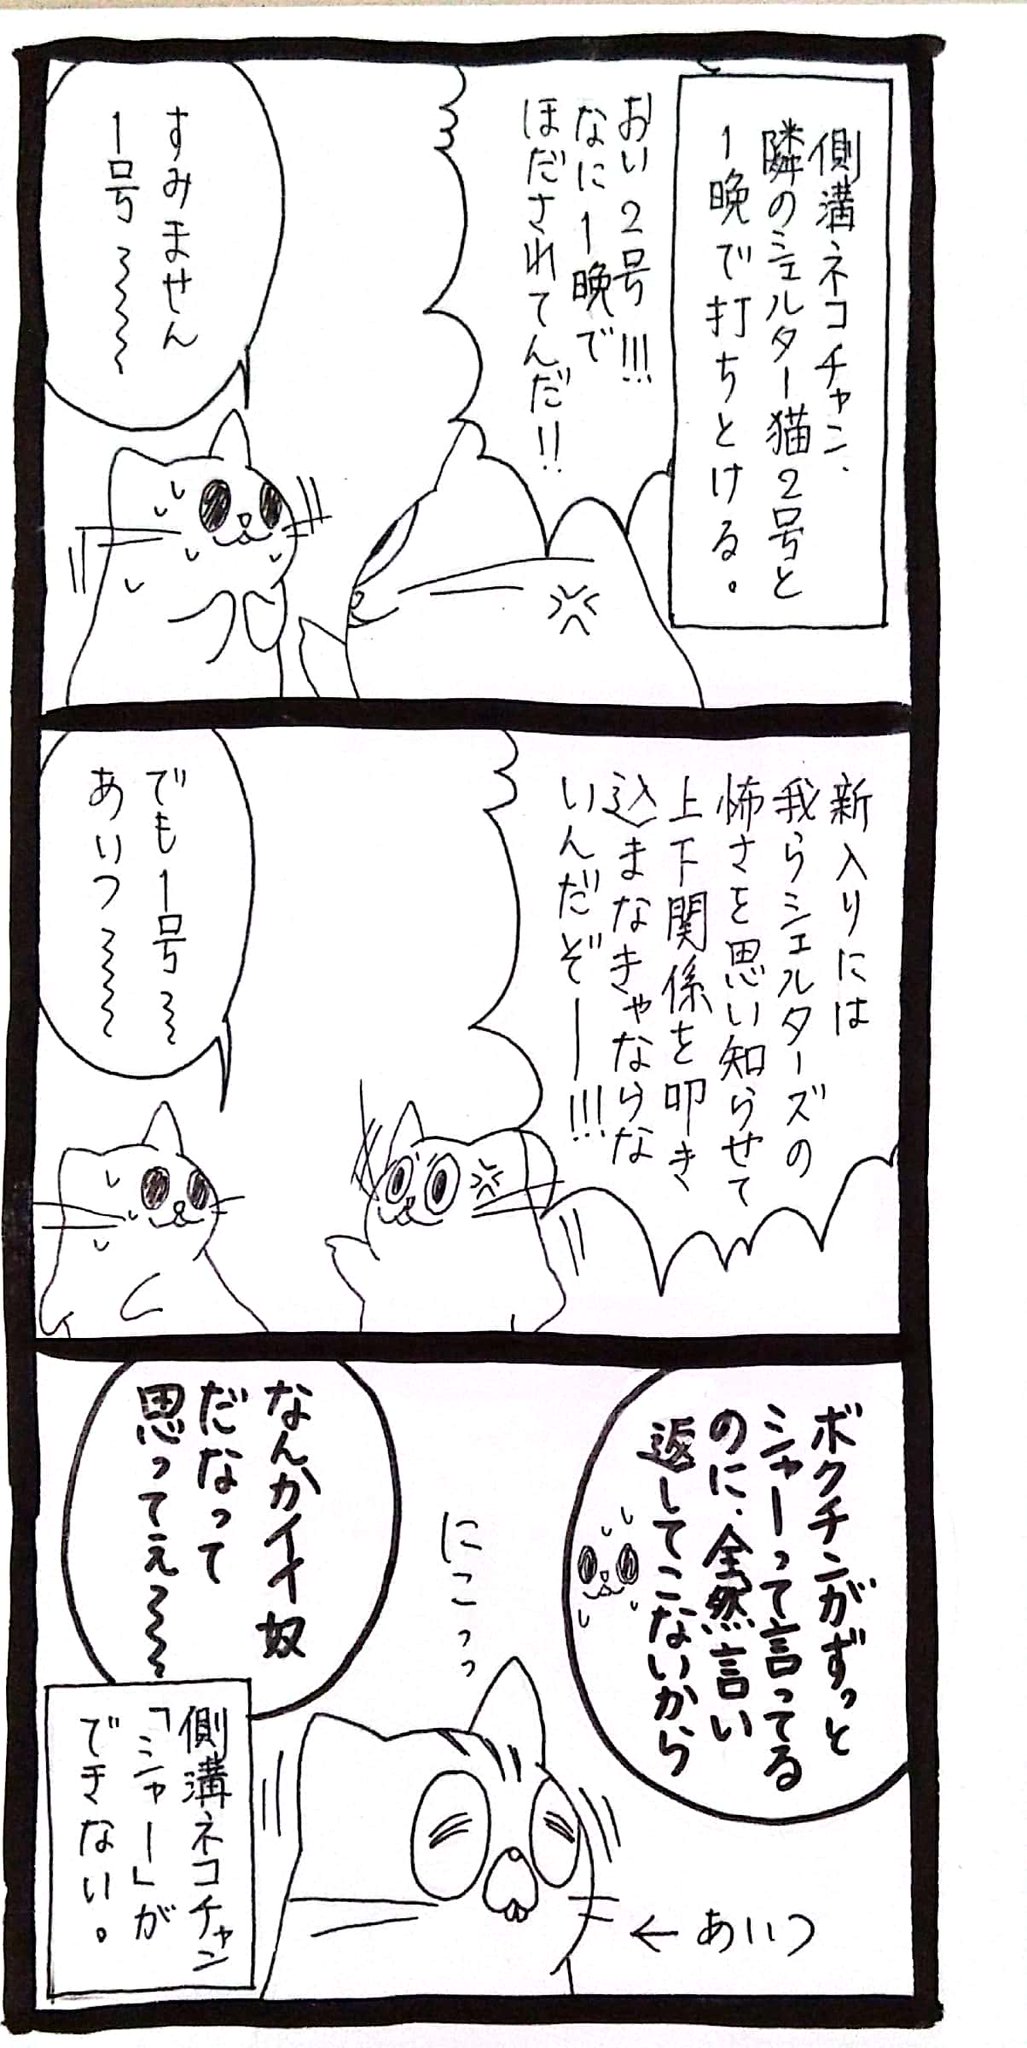 側溝ネコチャン、
隣のシェルター猫2号と
1晩で打ちとける。
おい2号!!!
なに1晩で
ほだされてんだ!!
すみません
1号〜〜〜
新入りには
我らシェルターズの
怖さを思い知らせて
上下関係を叩き
込まなきゃならな
いんだぞー!!!
でも1号〜
あいつ〜〜〜
ボクチンがずっと
シャーって言ってる
のに、全然言い
返してこないから
にこっっ
なんかイイ奴
だなって
思ってえ〜〜
←あいつ
側溝ネコチャン
「シャー」が
できない。